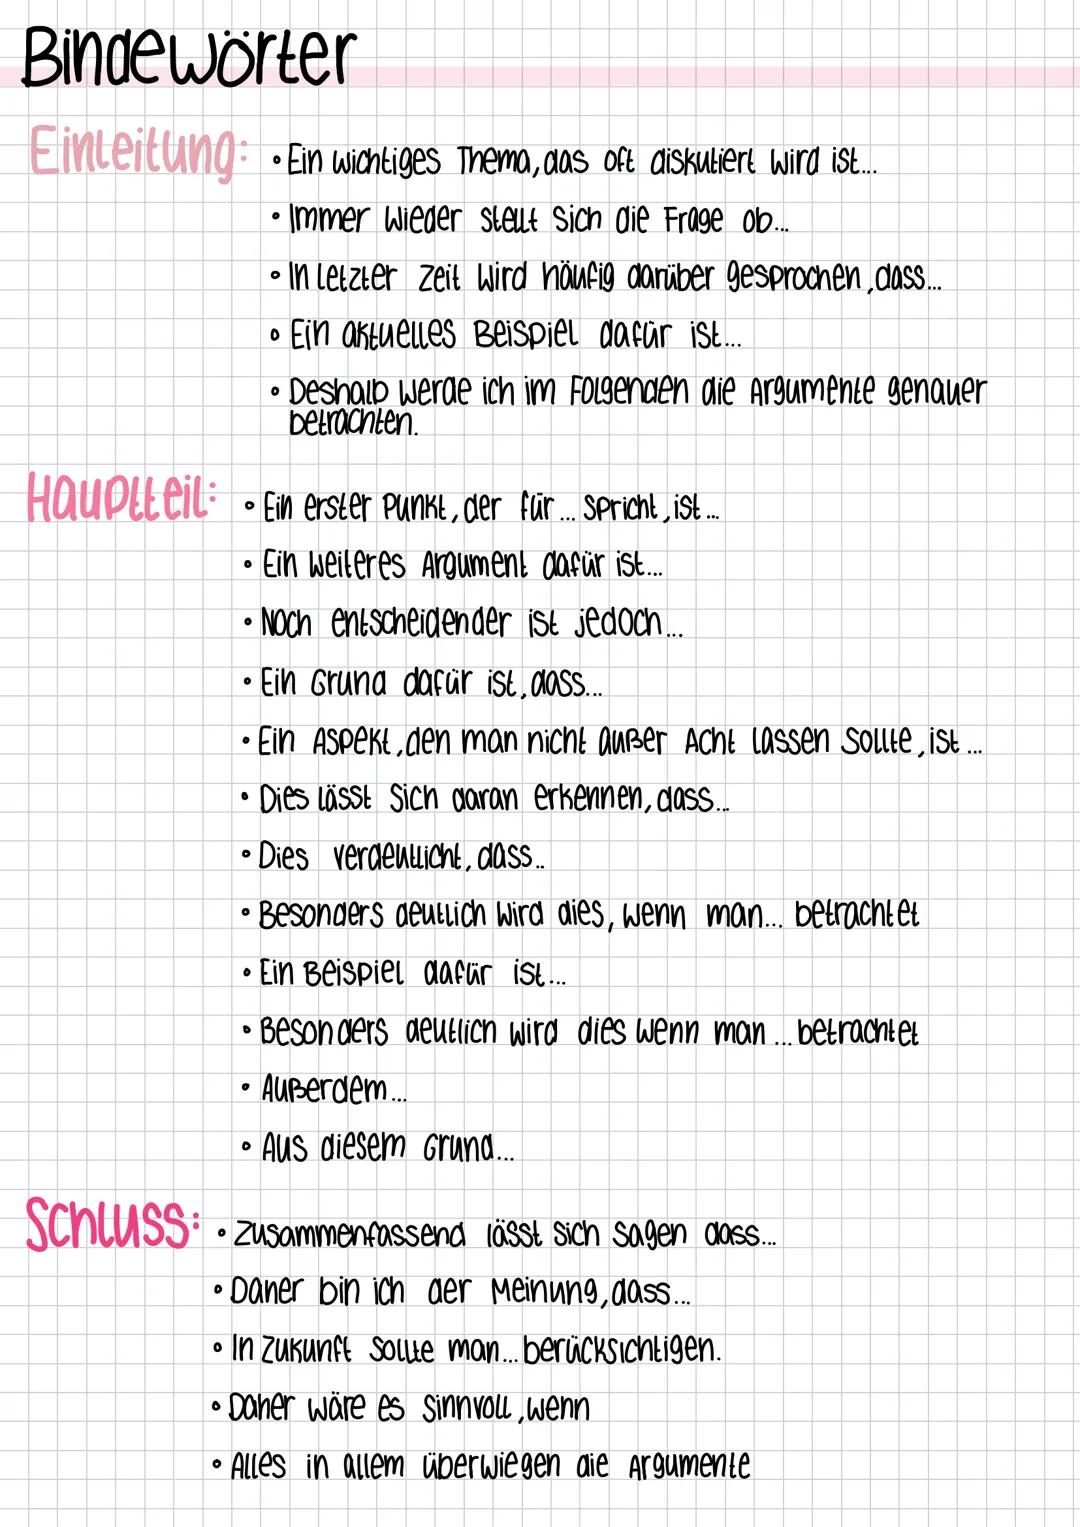 Bindewörter
Einleitung: • Ein wichtiges Thema, das oft diskutiert wird ist...
• Immer wieder stellt sich die Frage ob...
• In letzter Zeit wird häufig darüber gesprochen, dass...
• Ein aktuelles Beispiel dafür ist...
• Deshalb werde ich im Folgenden die Argumente genauer
betrachten.
Hauptteil: • Ein erster Punkt, der für ... spricht, ist ...
• Ein weiteres Argument dafür ist...
• Noch entscheidender ist jedoch...
• Ein Grund dafür ist, dass...
• Ein Aspekt, den man nicht außer Acht lassen sollte, ist ...
• Dies lässt sich daran erkennen, dass...
• Dies verdeutlicht, dass..
• Besonders deutlich wird dies, wenn man... betrachtet
• Ein Beispiel dafür ist...
• Besonders deutlich wird dies wenn man ... betrachtet
• Außerdem...
• Aus diesem Grund...
Schluss: • Zusammenfassend lässt sich sagen dass...
• Daher bin ich der Meinung, dass...
• In Zukunft sollte man... berücksichtigen.
• Daher wäre es sinnvoll, wenn
• Alles in allem überwiegen die Argumente